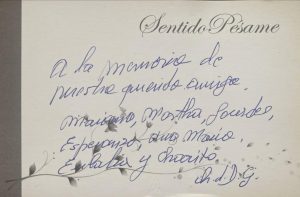 Sentido Pésame
A la memoria de
nuestra querida amiga.
Mariana, Martha, Lourdes,
Esperanza, Ana María,
Eulalia y